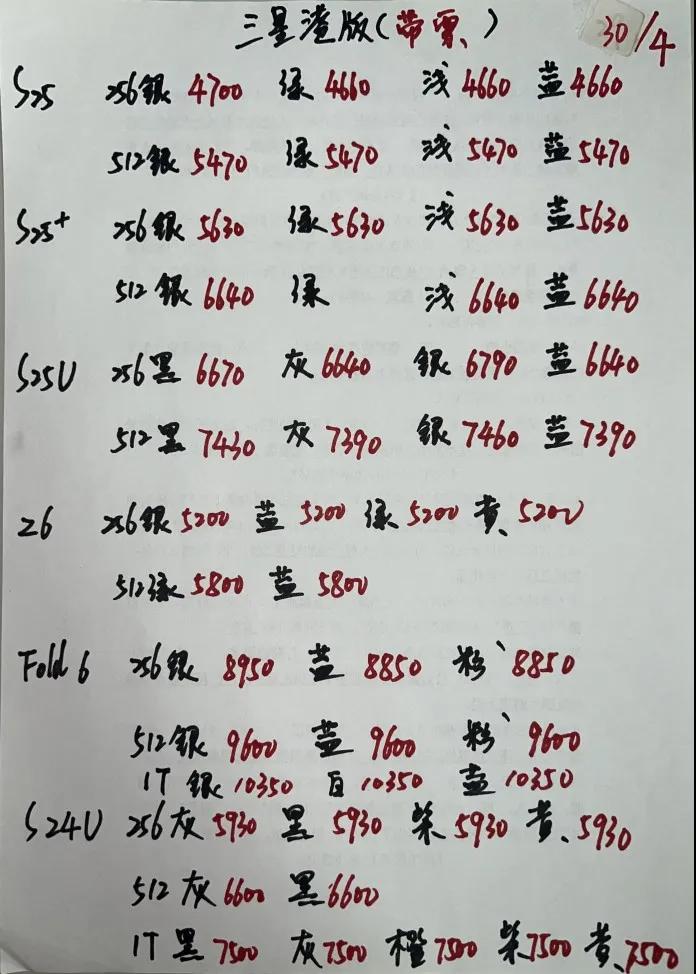 三星港版(带票) 30/4
S25 256银 4700 绿 4660 浅 4660 蓝 4660
512银 5470 绿 5470 浅 5470 蓝 5470
S25+ 256银 5630 绿 5630 浅 5630 蓝 5630
512银 6640 绿 浅 6640 蓝 6640
S25U 256黑 6670 灰 6640 银 6790 蓝 6640
512黑 7430 灰 7390 银 7460 蓝 7390
Z6 256银 5200 蓝 5200 绿 5200 黄 5200
512绿 5800 蓝 5800
Fold 6 256银 8950 蓝 8850 粉 8850
512银 9600 蓝 9600 粉 9600
1T 银 10350 白 10350 蓝 10350
S24U 256灰 5930 黑 5930 紫 5930 黄 5930
512灰 6600 黑 6600
1T 黑 7500 灰 7500 橙 7500 紫 7500 黄 7500